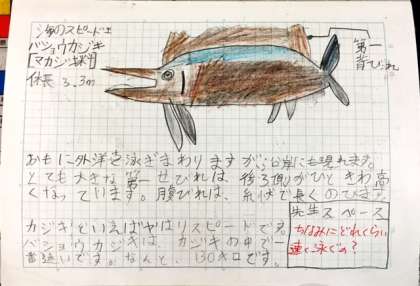 海のスピード王
バショウカジキ
[マカジキ科]
体長 3.3m
第一
背びれ
おもに外洋を泳ぎまわりますが、沿岸にも現れます。
とても大きな第一せびれは、後ろ側がひときわ高
くなっています。腹びれは、糸状で長くのびます。
カジキといえばやはりスピードです。
バショウカジキは、カジキの中で一
番速いです。なんと、130キロです。
先生スペース
ちなみにどれくらい
速く泳ぐの?